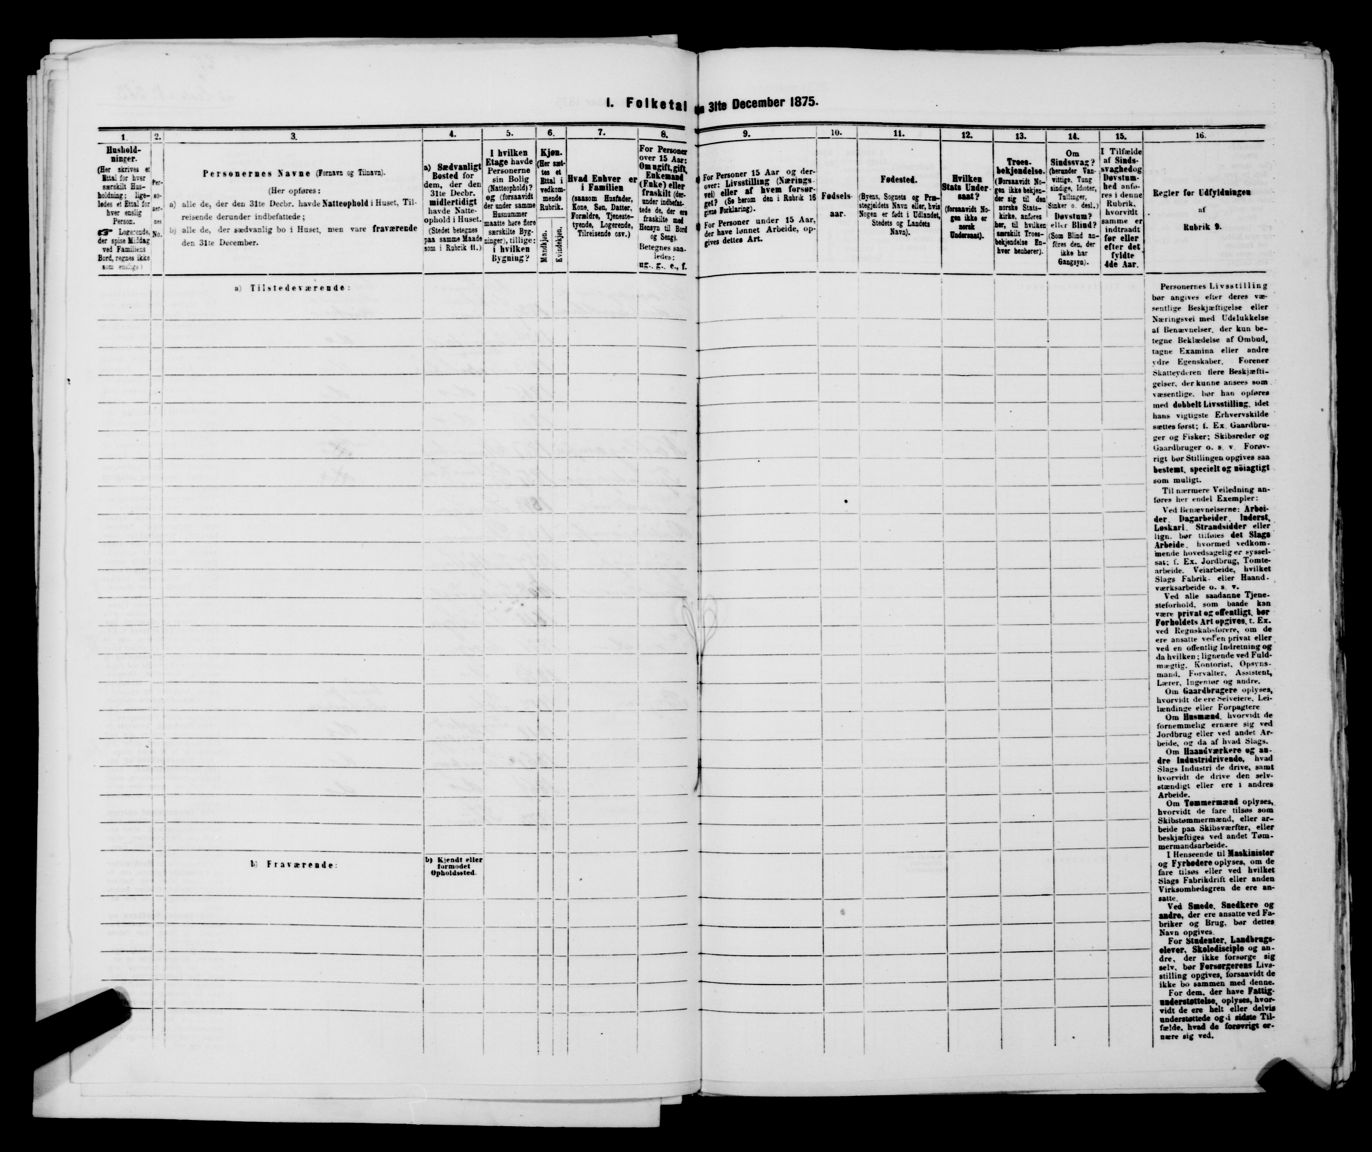 I. Folketal den 31te December 1875.
1.
Hushold-
ninger.
(Her skrives et
Ettal for hver
særskilt Hus-
holdning; lige-
ledes et Ettal for
hver enslig
Person.
Logerende,
der spise Middag
ved Familiens
Bord, regnes ikke
som enslige.)
2.
Per-
so-
ner-
nes
No.
3.
Personernes Navne (Fornavn og Tilnavn).
(Her opføres:
a) alle de, der den 31te Decbr. havde Natteophold i Huset, Til-
reisende derunder indbefattede;
b) alle de, der sædvanlig bo i Huset, men vare fraværende
den 31te December.
4.
a) Sædvanligt
Bosted for
dem, der den
31te Decbr.
midlertidigt
havde Natte-
ophold i Huset.
(Stedet betegnes
paa samme Maade
som i Rubrik 11.)
5.
I hvilken
Etage havde
Personerne
sin Bolig
(Natteophold)?
og (forsaavidt
der under samme
Husnummer
maatte høre flere
særskilte Byg-
ninger), tillige:
i hvilken
Bygning?
6.
Kjøn.
(Her sæt-
tes et
Ettal i
vedkom-
mende
Rubrik.
Mandkjøn.
Kvindekjøn.
7.
Hvad Enhver er
i Familien
(saasom Husfader,
Kone, Søn, Datter,
Forældre, Tjeneste-
tyende, Logerende,
Tilreisende osv.)
8.
For Personer
over 15 Aar:
Om ugift, gift,
Enkemand
(Enke) eller
fraskilt (der-
under indbefat-
tede de, der ere
fraskilte med
Hensyn til Bord
og Seng).
Betegnes saa-
ledes:
ug., g., e., f.
9.
For Personer 15 Aar og der-
over: Livsstilling (Nærings-
vei) eller af hvem forsør-
get? (Se herom den i Rubrik 16
givne Forklaring).
For Personer under 15 Aar,
der have lønnet Arbeide, op-
gives dettes Art.
10.
Fødsels-
aar.
11.
Fødested.
(Byens, Sognets og Præ-
stegjeldets Navn eller, hvis
Nogen er født i Udlandet,
Stedets og Landets
Navn).
12.
Hvilken
Stats Under-
saat?
(forsaavidt No-
gen ikke er
norsk
Undersaat).
13.
Troes-
bekjendelse.
(Forsaavidt No-
gen ikke bekjen-
der sig til den
norske Stats-
kirke, anføres
her, til hvilken
særskilt Troes-
bekjendelse En-
hver henhører).
14.
Om
Sindssvag?
(herunder Van-
vittige, Tung
sindige, Idioter,
Tullinger,
Sinker o. desl.)
Døvstum?
eller Blind?
(Som Blind an-
føres den, der
ikke har
Gangsyn).
15.
I Tilfælde
af Sinds-
svaghed og
Døvstum-
hed anfø-
res i denne
Rubrik,
hvorvidt
samme er
indtraadt
før eller
efter det
fyldte
4de Aar.
16.
Regler for Udfyldningen
af
Rubrik 9.
a) Tilstedeværende:
b) Fraværende:
b) Kjendt eller
formodet
Opholdssted.
Personernes Livsstilling
bør angives efter deres væ-
sentlige Beskjæftigelse eller
Næringsvei med Udelukkelse
af Benævnelser, der kun be-
tegne Beklædelse af Ombud,
tagne Examina eller andre
ydre Egenskaber. Forener
Skatteyderen flere Beskjæfti-
gelser, der kunne ansees som
væsentlige, bør han opføres
med dobbelt Livsstilling, idet
hans vigtigste Erhvervskilde
sættes først; f. Ex. Gaardbru-
ger og Fisker; Skibsreder og
Gaardbruger o. s. v. Forøv-
rigt bør Stillingen opgives saa
bestemt, specielt og nøiagtigt
som muligt.
Til nærmere Veiledning an-
føres her endel Exempler:
Ved Benævnelserne: Arbei-
der, Dagarbeider, Inderst,
Løskarl, Strandsidder eller
lign. bør tilføies det Slags
Arbeide, hvormed vedkom-
mende hovedsagelig er syssel-
sat; f. Ex. Jordbrug, Tomte-
arbeide, Veiarbeide, hvilket
Slags Fabrik- eller Haand-
værksarbeide o. s. v.
Ved alle saadanne Tjene-
steforhold, som baade kan
være privat og offentligt, bør
Forholdets Art opgives, f. Ex.
ved Regnskabsførere, om de
ere ansatte ved en privat eller
ved en offentlig Indretning og
da hvilken; lignende ved Fuld-
mægtig, Kontorist, Opsyns-
mand, Forvalter, Assistent,
Lærer, Ingeniør og andre.
Om Gaardbrugere oplyses,
hvorvidt de ere Selveiere, Lei-
lændinge eller Forpagtere
Om Husmænd, hvorvidt de
fornemmelig ernære sig ved
Jordbrug eller ved andet Ar-
beide, og da af hvad Slags.
Om Haandværkere og an-
dre Industridrivende, hvad
Slags Industri de drive, samt
hvorvidt de drive den selv-
stændigt eller ere i andres
Arbeide.
Om Tømmermænd oplyses,
hvorvidt de fare tilsøs som
Skibstømmermænd, eller ar-
beide paa Skibsværfter, eller
beskjæftiges ved andet Tøm-
mermandsarbeide.
I Henseende til Maskinister
og Fyrbødere oplyses, om de
fare tilsøs eller ved hvilket
Slags Fabrikdrift eller anden
Virksomhedsgren de ere an-
satte.
Ved Smede, Snedkere og
andre, der ere ansatte ved Fa-
briker og Brug, bør dettes
Navn opgives.
For Studenter, Landbrugs-
elever, Skoledisciple og an-
dre, der ikke forsørge sig
selv, bør Forsørgerens Livs-
stilling opgives, forsaavidt de
ikke bo sammen med denne.
For dem, der have Fattig-
understøttelse, oplyses, hvor-
vidt de ere helt eller delvis
understøttede og i sidste Til-
fælde, hvad de forøvrigt er-
nære sig ved.